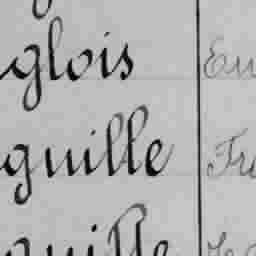 glois Eu
guille Fr
guille